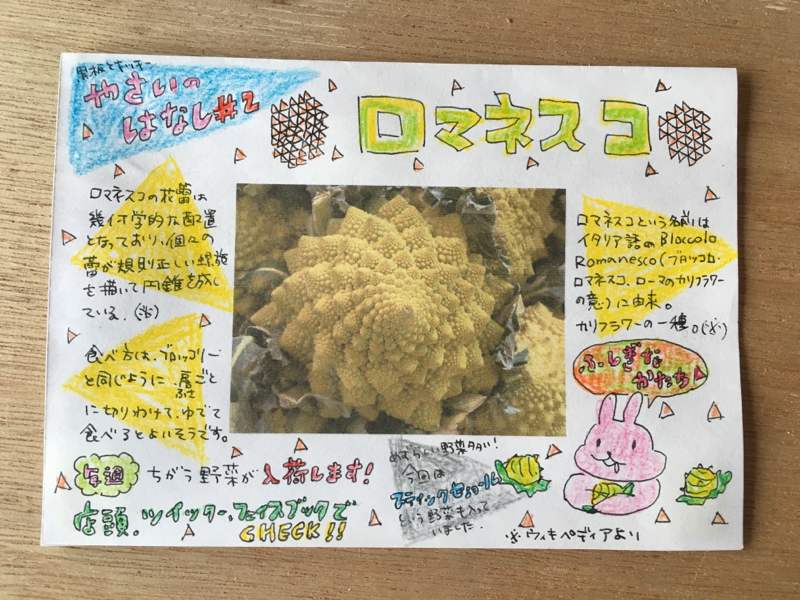 看板とキッチー
やさいの
はなし#2
ロマネスコ
ロマネスコの花蕾は
幾何学的な配置
となっており、個々の
蕾が規則正しい螺旋
を描いて円錐を成し
ている。(※)
食べ方は、ブロッコリー
と同じように、房ごと
ふさ
に切りわけて、ゆでて
食べるとよいそうです。
ロマネスコという名前は
イタリア語のBloccolo
Romanesco(ブロッコロ・
ロマネスコ、ローマのカリフラワー
の意)に由来。
カリフラワーの一種。(※)
ふしぎな
かたち
毎週
ちがう野菜が入荷します!
店頭、ツイッター、フェイスブックで
CHECK!!
めずらしい野菜タダイ!
今回は
スティックセニョール
という野菜も入って
いました。
※ウィキペディアより